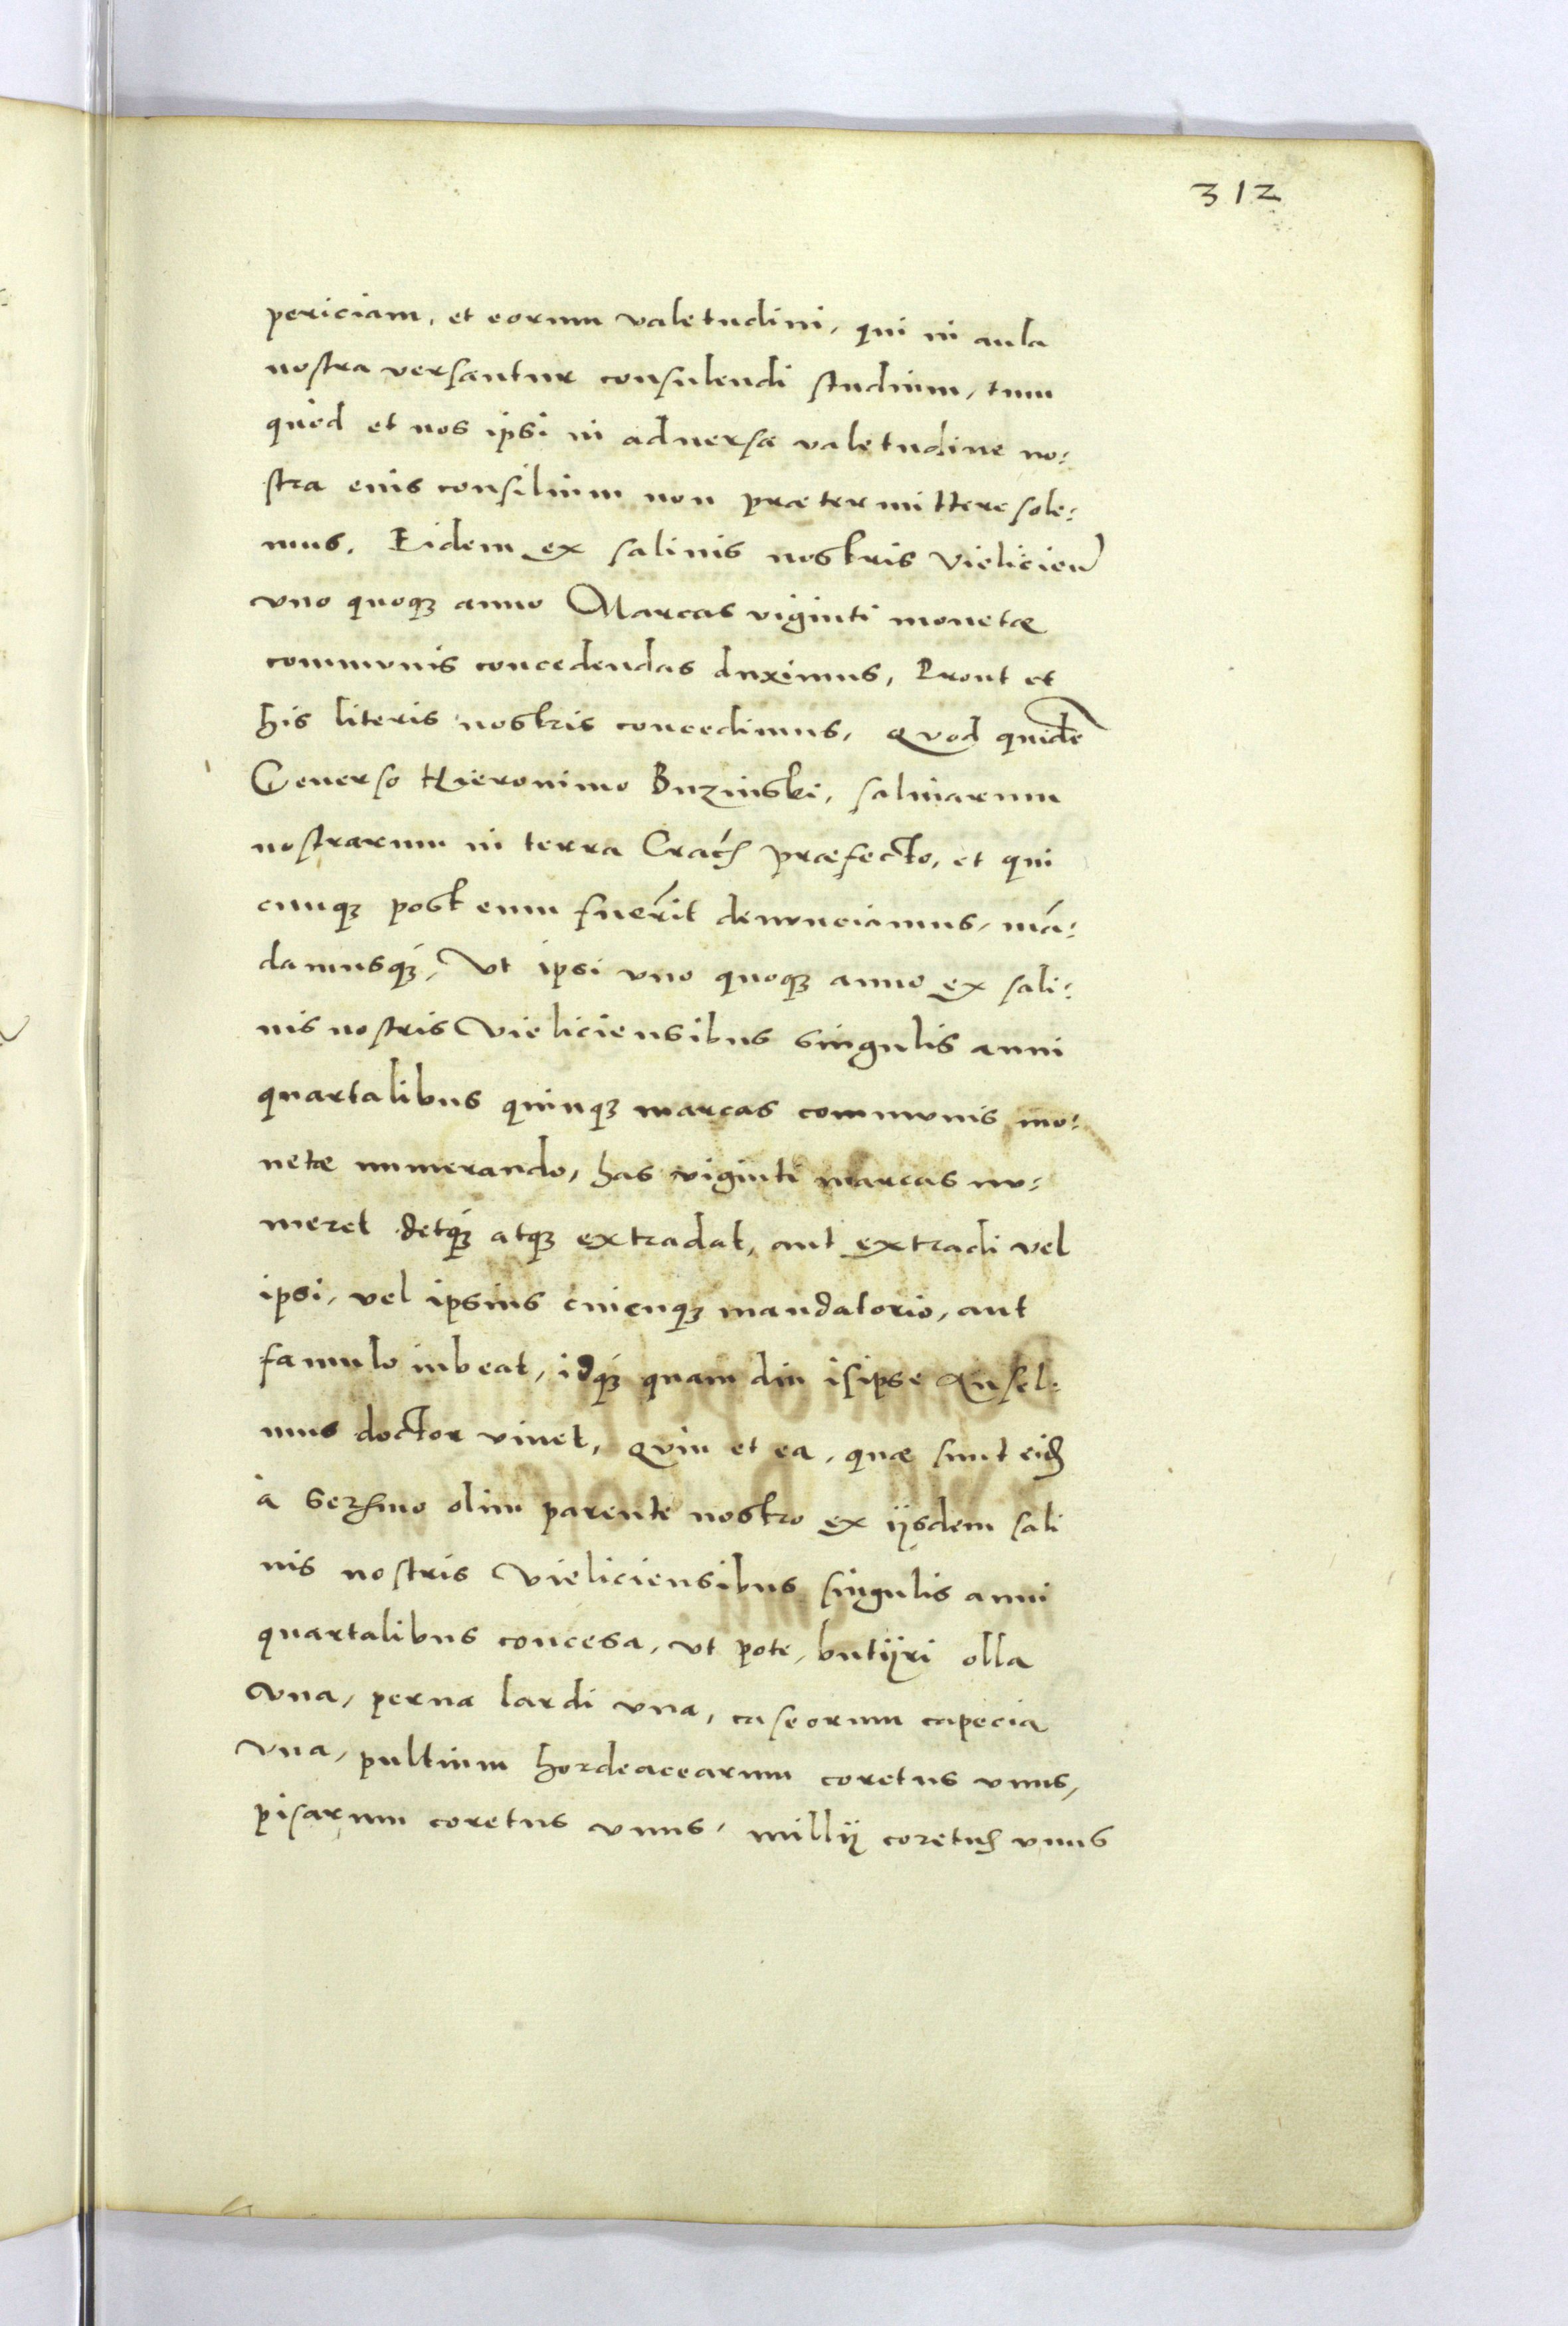 312
periciam, et eorum valetudini, qui in aula
nostra versantur consulendi studium, tum
quod et nos ipsi in aduersa valetudine no:
stra eius consilium non prætermittere sole:
mus. Eidem ex salinis nostris Vielicien
vno quoqꝫ anno Marcas viginti monetæ
communis concedendas duximus, Prout et
his literis nostris concedimus, Quod quidẽ
Generso Hieronimo Buzinski, salinarum
nostrarum in terra Cracꝭ præfecto, et qui
cunqꝫ post eum fuerit denunciamus, mã:
damusqꝫ, Vt ipsi vno quoqꝫ anno ex sali:
nis nostris Vieliciensibus singulis anni
quartalibus quinqꝫ marcas communis mo:
netæ numerando, has viginti marcas nu:
meret detqꝫ atqꝫ extradat, aut extradi vel
ipsi, vel ipsius cuicunqꝫ mandatorio, aut
famulo iubeat, idqꝫ quam diu is ipse Ansel:
mus doctor viuet, Quin et ea, quæ sunt eidꝭ
à Serꝭmo olim parente nostro ex ijsdem sali
nis nostris Vieliciensibus singulis anni
quartalibus concesa, vt pote, butijri olla
vna, perna lardi vna, caseorum capecia
vna, pultium hordeacearum coretus vnus,
pisarum coretus vnus, millij coretus vnus